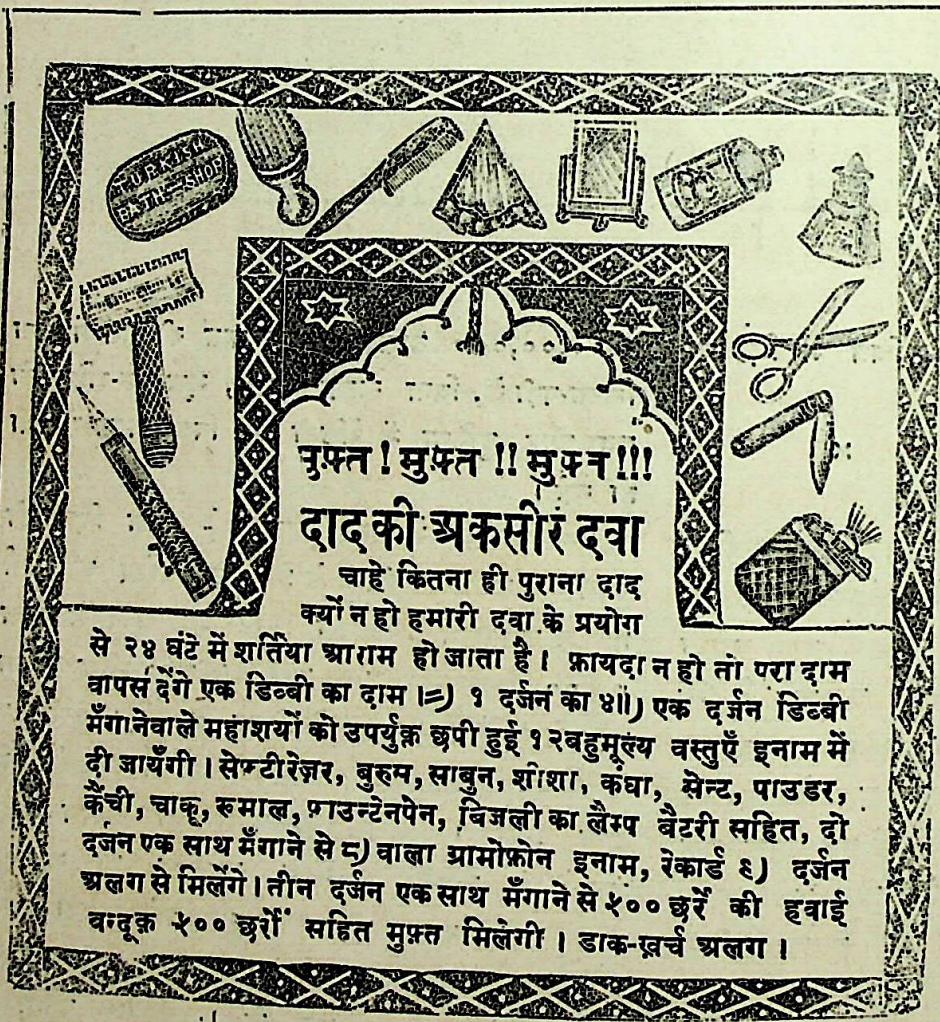 TURKISH
BATH-SHOP
मुफ़्त ! मुफ़्त !! मुफ़्त !!!
दाद की अकसीर दवा
चाहे कितना ही पुराना दाद
क्यों न हो हमारी दवा के प्रयोग
से २४ घंटे में शर्तिया आराम हो जाता है। फ़ायदा न हो तो पूरा दाम
वापस देंगे एक डिब्बी का दाम ।=) १ दर्जन का ४॥) एक दर्जन डिब्बी
मँगानेवाले महाशयों को उपर्युक्त छपी हुई १२बहुमूल्य वस्तुएँ इनाम में
दी जायँगी। सेफ़्टीरेज़र, बुरुस, साबुन, शीशा, कंघा, सेन्ट, पाउडर,
कैंची, चाक़ू, रुमाल, फ़ाउन्टेनपेन, बिजली का लैम्प बैटरी सहित, दो
दर्जन एक साथ मँगाने से ८) वाला ग्रामोफ़ोन इनाम, रेकार्ड ६) दर्जन
अलग से मिलेंगे। तीन दर्जन एक साथ मँगाने से ५०० छर्रे की हवाई
बन्दूक़ ५०० छर्रों सहित मुफ़्त मिलेगी। डाक-ख़र्च अलग।